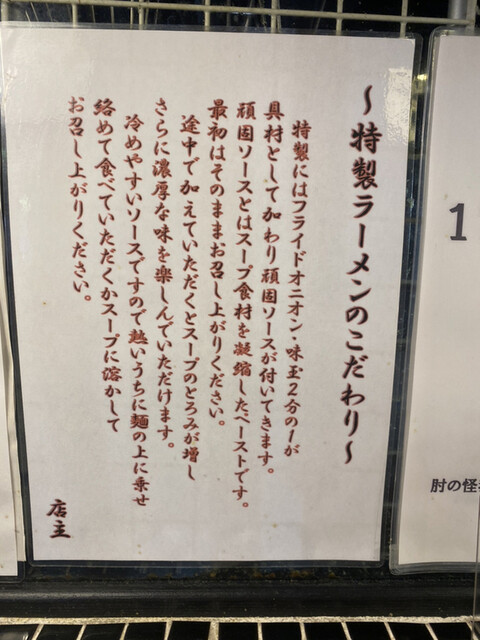 ～特製ラーメンのこだわり～
特製にはフライドオニオン・味玉2分の1が
具材として加わり頑固ソースが付いてきます。
頑固ソースとはスープ食材を凝縮したペーストです。
最初はそのままお召し上がりください。
途中で加えていただくとスープのとろみが増し
さらに濃厚な味を楽しんでいただけます。
冷めやすいソースですので熱いうちに麺の上に乗せ
絡めて食べていただくかスープに溶かして
お召し上がりください。
店主
1
肘の怪